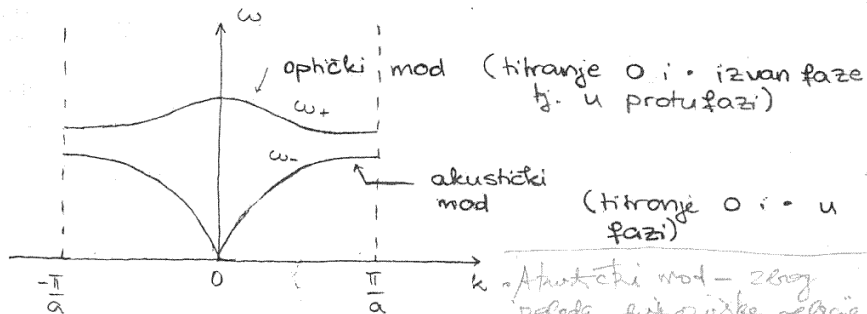 ω
optički mod (titranje o i • izvan faze
tj. u protufazi)
ω+
ω-
akustički
mod
(titranje o i • u
fazi)
-π/a
0
π/a
k
Akustički mod - zbog